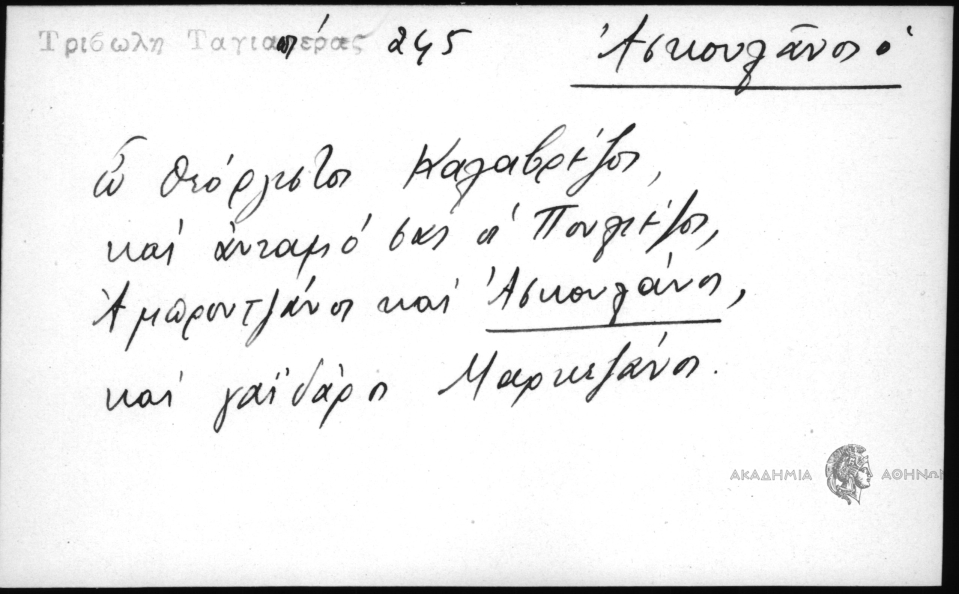 Τριβωλη Ταγιαπιέρας 245
Ἀσκουλᾶνοι ὁ
ὦ θεόργιστοι Καλαβρέζοι,
καὶ ἀνταμιό σας οἱ Πουλιέζοι,
Ἀμπρουτζάνοι καὶ Ἀσκουλάνοι,
καὶ γαϊδάροι Μαρκεζάνοι.
ΑΚΑΔΗΜΙΑ ΑΘΗΝΩΝ